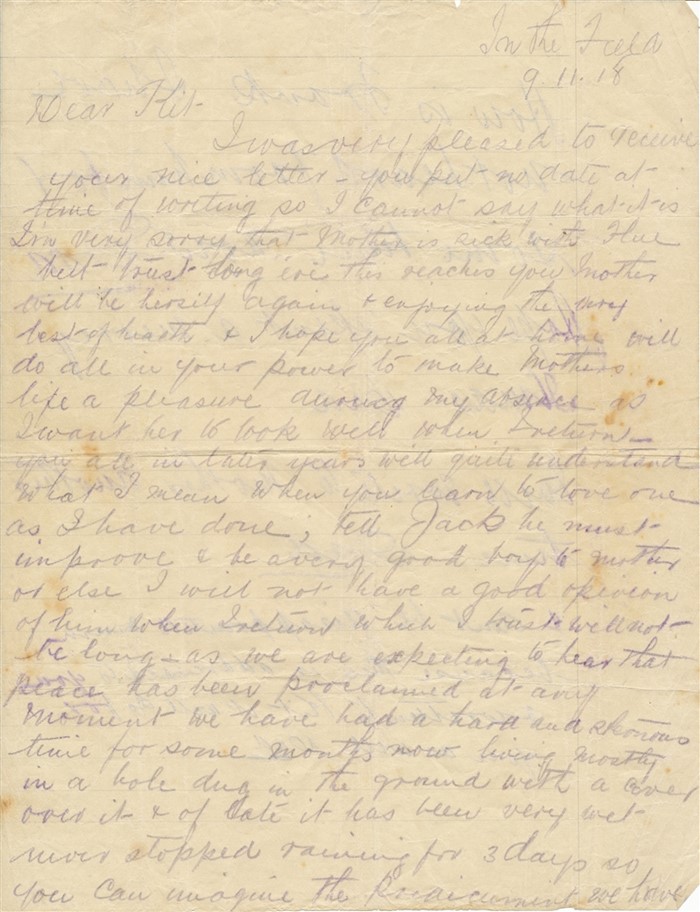 In the Field
9.11.18
Dear Kit-
I was very pleased to receive
your nice letter - you put no date at
time of writing so I cannot say what it is
I'm very sorry that Mother is sick with Flue
but trust long ere this reaches you Mother
will be herself again & enjoying the very
best of hearth & I hope you all at home will
do all in your power to make Mothers
life a pleasure during my absence as
I want her to look well when I return
you all in later years will quite understand
what I mean when you learn to love one
as I have done, tell Jack he must
improve & be a very good boy to mother
or else I will not have a good opinion
of him when I return which I trust will not
be long - as we are expecting to hear that
peace has been proclaimed at any
moment we have had a hard and
time for some months now living mostly
in a hole dug in the ground with a cover
over it & of late it has been very wet
never stopped raining for 3 days so
you can imagine the we have